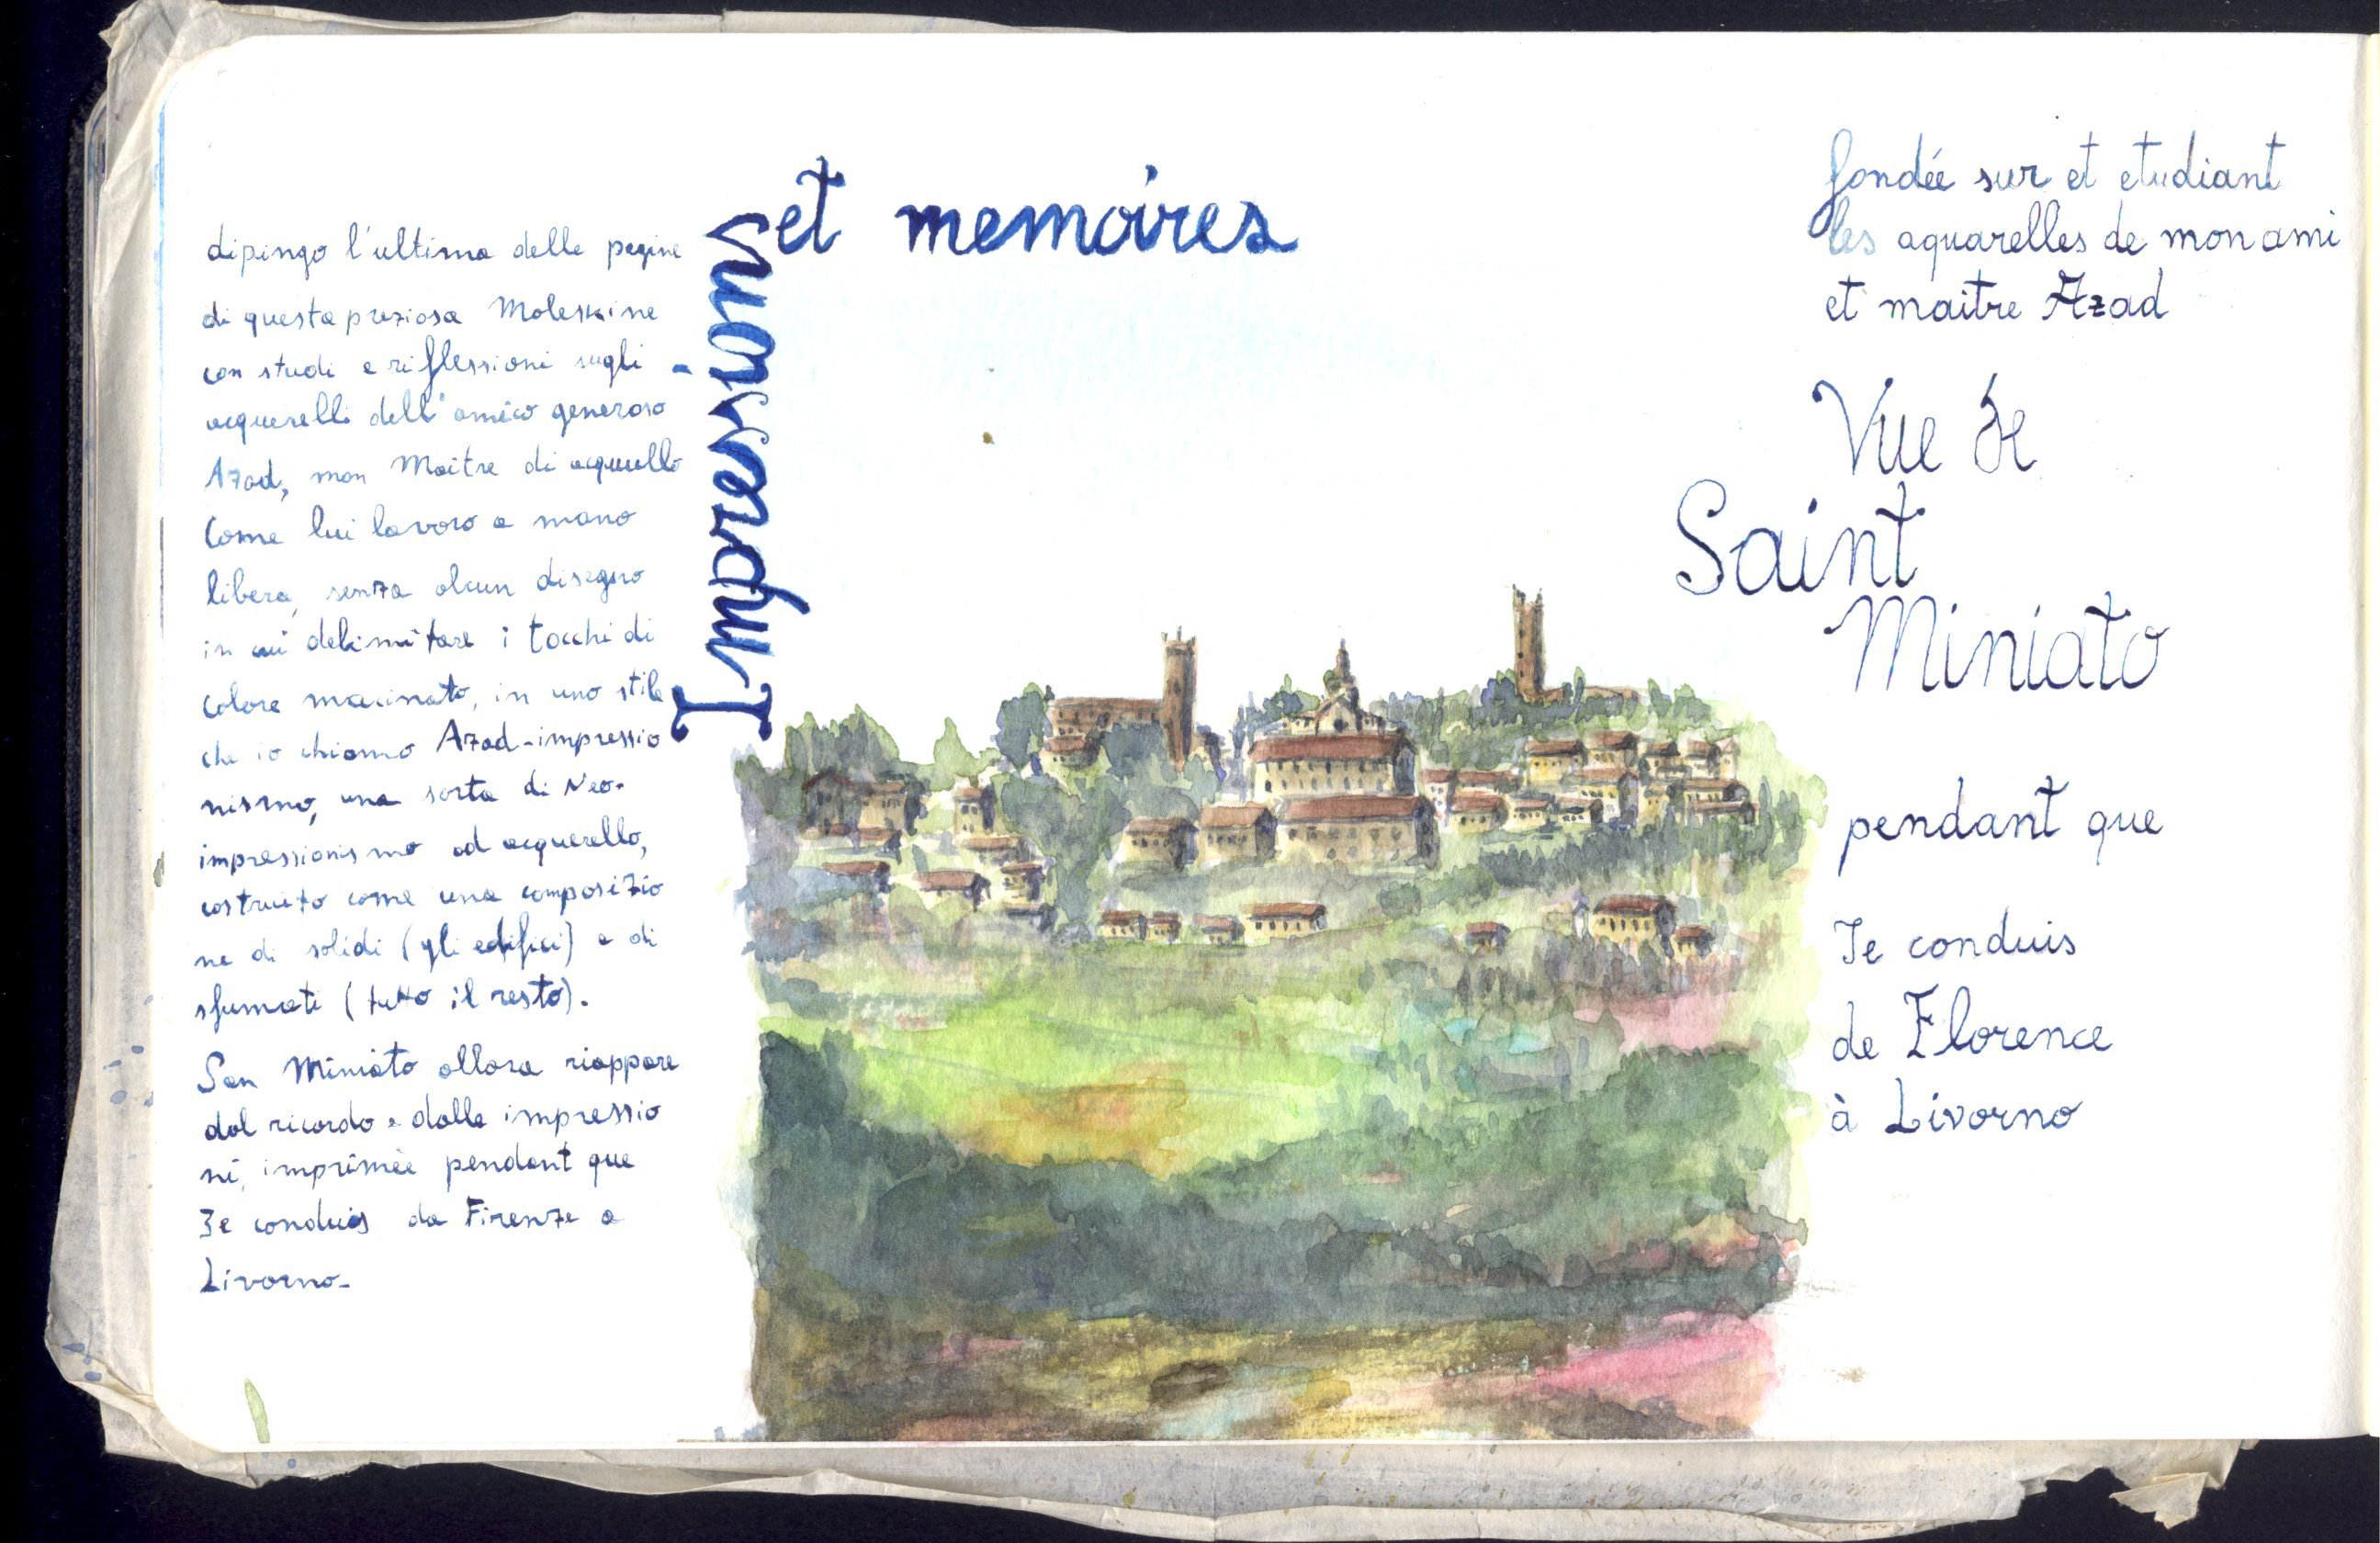 dipingo l'ultima delle pagine
di questa preziosa Moleskine
con studi e riflessioni sugli
acquerelli dell'amico generoso
Azad, mon Maitre di acquerello
Come lui lavoro a mano
libera, senza alcun disegno
in cui delimitare i tocchi di
colore macinato, in uno stile
che io chiamo Azad-impressio
nismo, una sorta di Neo-
impressionismo ad acquerello,
costruito come una composizio
ne di solidi (gli edifici) e di
sfumati (tutto il resto).
San Miniato allora riappare
dal ricordo e dalle impressio
ni, imprimée pendant que
Je conduis da Firenze a
Livorno-
Impressions
et memoires
fondée sur et etudiant
les aquarelles de mon ami
et maitre Azad
Vue de
Saint
Miniato
pendant que
Je conduis
de Florence
à Livorno